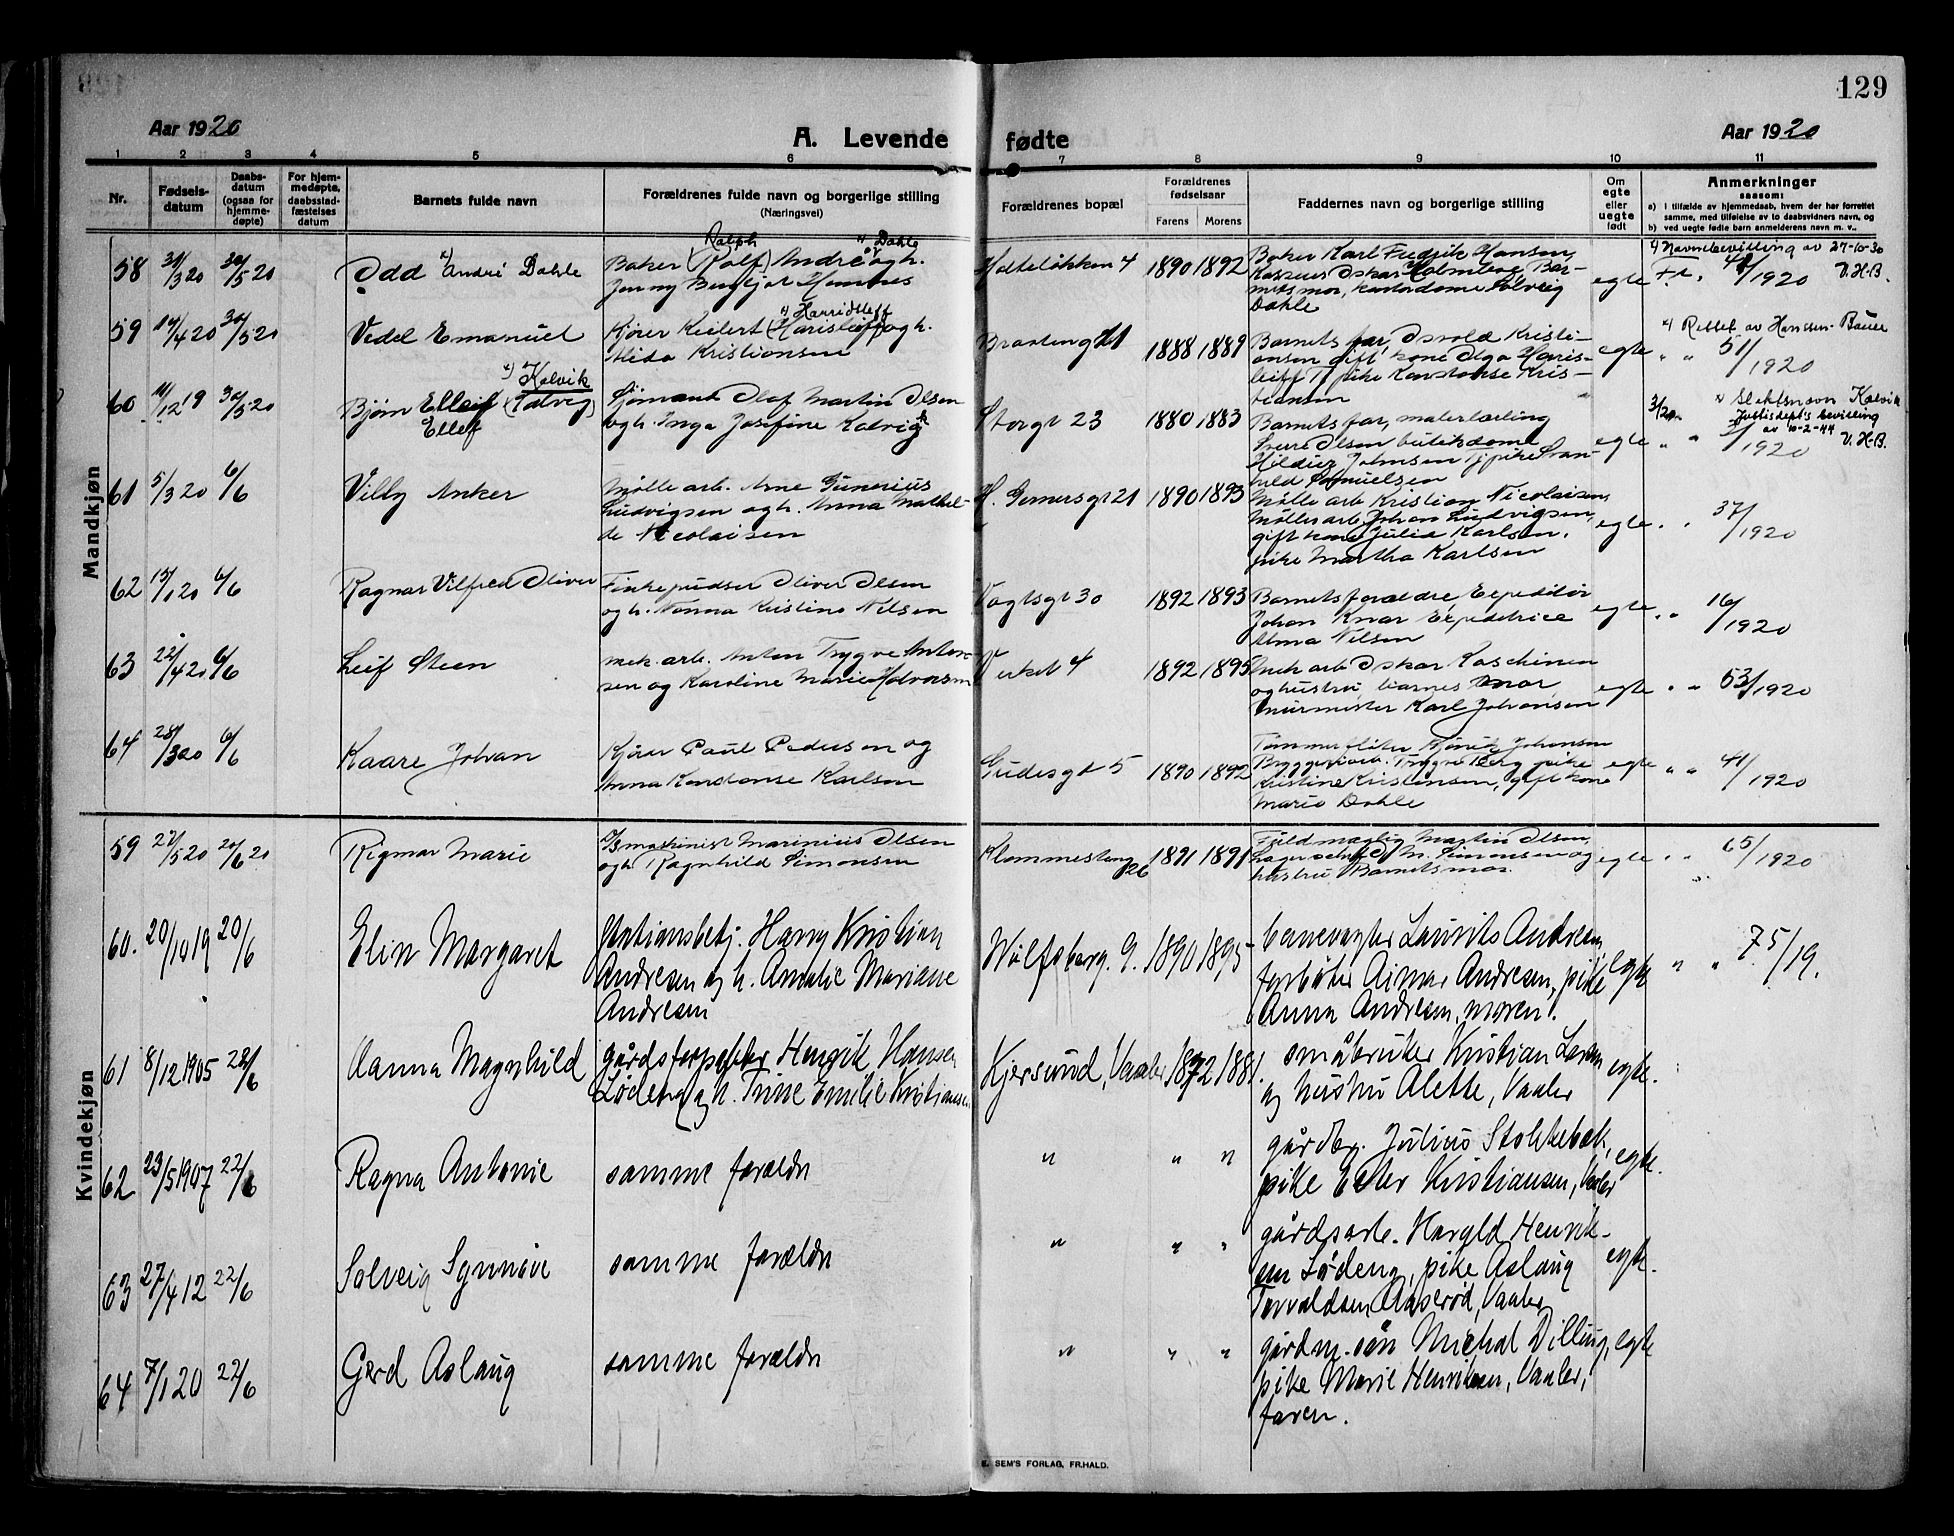 129
Aar 1920
A. Levende fødte
Aar 1920
1 2 3 4 5 6 7 8 9 10 11
Nr.
Fødsels-
datum
Daabs-
datum
(ogsaa for
hjemme-
døpte)
For hjem-
medøpte,
daabsstad-
fæstelses
datum
Barnets fulde navn
Forældrenes fulde navn og borgerlige stilling
(Næringsvei)
Forældrenes bopæl
Forældrenes
fødselsaar
Farens Morens
Faddernes navn og borgerlige stilling
Om
egte
eller
uegte
født
Anmerkninger
saasom:
a) I tilfælde av hjemmedaab, hvem der har forrettet
samme, med tilføielse av to daabsvidners navn, og
b) ved uegte født barn anmelderens navn m. v.,
Mandkjøn
58 31/3 20 30/5 20
Odd x) André Dahle
Ralph x) Dahle
Baker (Rolf) André og h.
Jenny Bergljot Hannes
Holteløkken 4 1890 1892
Baker Karl Fredrik Hansen,
Kasserer Oskar Holmberg, Bar-
netsmor, kontordame Solveig
Dahle
egte
x) Navnebevilling av 27-10-30
V. H-B.
/1920
59 14/4 20 30/5 20
Vedel Emanuel
x) Harridsleff
Kjører Keilert (Harisleiff) og h.
Alida Kristiansen
Braateng 21 1888 1889
Barnets far, Osvald Kristi-
ansen gift kone Olga Haris-
leiff Tj.pike Konstanse Kris-
tiansen
egte " " 51/1920
x) Rettet av Hansen-Bauer
60 11/12 19 30/5 20
x) Kalvik
Bjørn Elleif (Kalvig)
Ellef
Sjømand Olaf Martin Olsen
og h. Inga Josefine Kalvig
Storgt 23 1880 1883
Barnets far, malerlærling
Sverre Olsen butikdame
Hildur Johnsen Tj.pike Svan-
hild Samuelsen
egte " " 3/20
/1920
x) Slektsnavn Kalvik
Justisdept's bevilling
av 10-2-44 V. H-B.
61 5/3 20 6/6
Villy Anker
Mølle arb. Arne Gunerius
Ludvigsen og h. Anna Mathil-
de Nicolaisen
H. Gernersgt 21 1890 1893
Mølle arb Kristian Nicolaisen,
Mølle arb. Johan Ludvigsen,
gift kone Julia Karlsen,
pike Martha Karlsen
egte " " 37/1920
62 15/1 20 6/6
Ragnar Vilfred Oliver
Oliver Olsen
og h. Nanna Kristine Nilsen
Vogtsgt 30 1892 1893
Barnets forældre Expeditør
Johan Knar Expeditrice
Alma Nilsen
egte " " 16/1920
63 22/4 20 6/6
Leif Steen
mek. arb. Anton Trygve Anton-
sen og Karoline Marie Halvorsen
Verket 4 1892 1895
Mek arb Oskar Kaschinen
og hustru, barnes mor,
murmester Karl Johansen
egte " " 53/1920
64 28/3 20 6/6
Kaare Johan
Kjører Paul Pedersen og
Anna Konstanse Karlsen
Gudesgt 5 1890 1892
Tømmerfløter Johansen
Bryggeriarb. Trygve Berg pike
Kristine Kristensen, gift kone
Marie Dahle
egte " " 41/1920
Kvindekjøn
59 27/5 20 20/6 20
Rigmor Marie
maskinist Marinius Olsen
og h. Ragnhild Simonsen
Klommesteng 26 1891 1891
Fuldmægtig Martin Olsen,
M. Simonsen og
hustru Barnetsmor.
egte " " 65/1920
60. 20/10 19 20/6
Elin Margaret
Stationsbetj. Harry Kristian
Andresen og h. Amalie Mariane
Andresen
Wulfsberg. 9. 1890 1895
banevogter Laurits Andresen,
forbøter Aimar Andresen, pike
Anna Andresen, moren.
egte " " 75/19.
61 8/12 1905 22/6
Hanna Magnhild
gårdsforpakter Henrik Hansen
Lødeng og h. Trine Emilie Kristiansen
Kjersund, Vaaler 1872 1881.
småbruker Kristian Larsen
og hustru Alette, Vaaler
egte.
62 23/5 1907 22/6
Ragna Antonie
samme forældre
" " "
gårdbr. Julius Stokkebæk,
pike Ester Kristiansen, Vaaler
egte.
63 27/4 12 22/6
Solveig Synnøve
samme forældre
" " "
gårdsarb. Harald Henrik-
sen Lødeng, pike Aslaug
Torvaldsen Aaserød, Vaaler
egte.
64 7/1 20 22/6
Gerd Aslaug
samme forældre
" " "
gårdm. søn Michal Dilling,
pike Marie Henriksen, Vaaler,
faren.
egte
E. SEM'S FORLAG, FR.HALD.